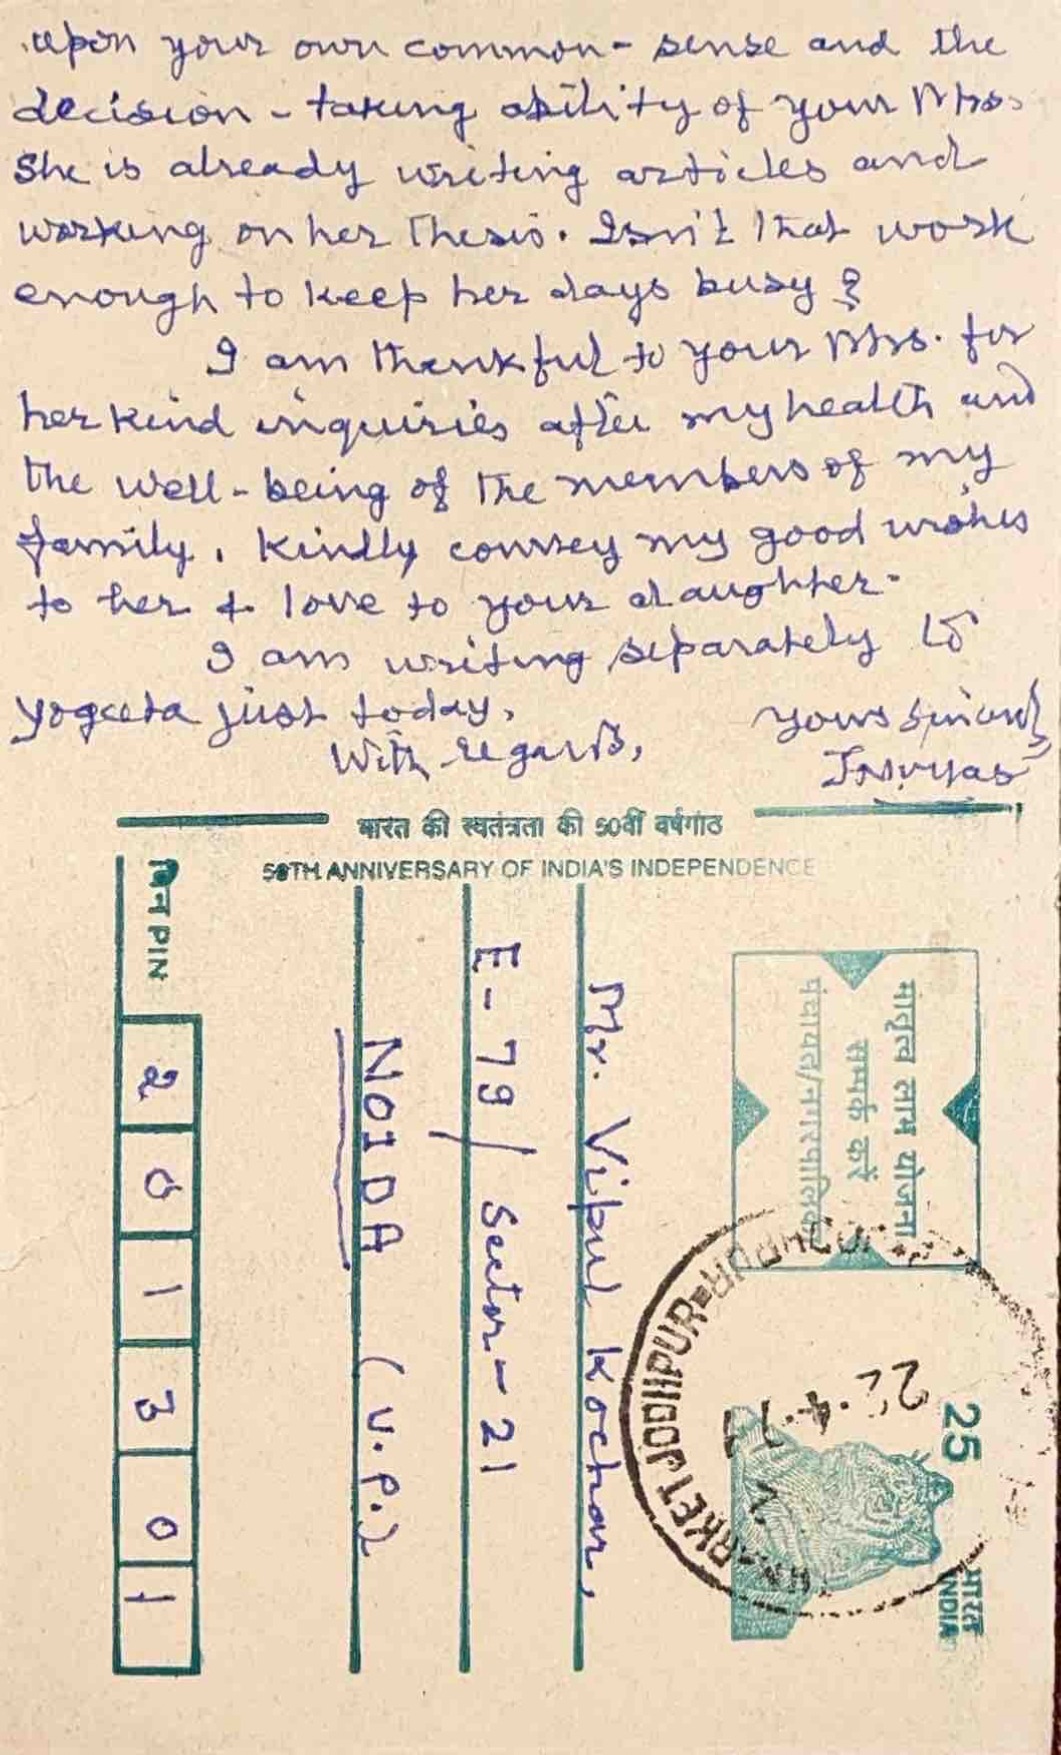 upon your own common-sense and the
decision-taking ability of your Mrs.
She is already writing articles and
working on her Thesis. Isn't that work
enough to keep her days busy?
I am thankful to your Mrs. for
her kind inquiries after my health and
the well-being of the members of my
family. Kindly convey my good wishes
to her & love to your daughter-
I am writing separately to
Yogeeta just today.
With regards,
Yours Sincerely
भारत की स्वतंत्रता की 50वीं वर्षगांठ
50TH ANNIVERSARY OF INDIA'S INDEPENDENCE
मातृत्व लाभ योजना
सम्पर्क करें
पंचायत/नगरपालिका
25
भारत
INDIA
MARKET JODHPUR
JODHPUR
22.4.
Mr. Vipul Kochar,
E-79/ Sector-21
NOIDA (U.P.)
पिन PIN 2 0 1 3 0 1